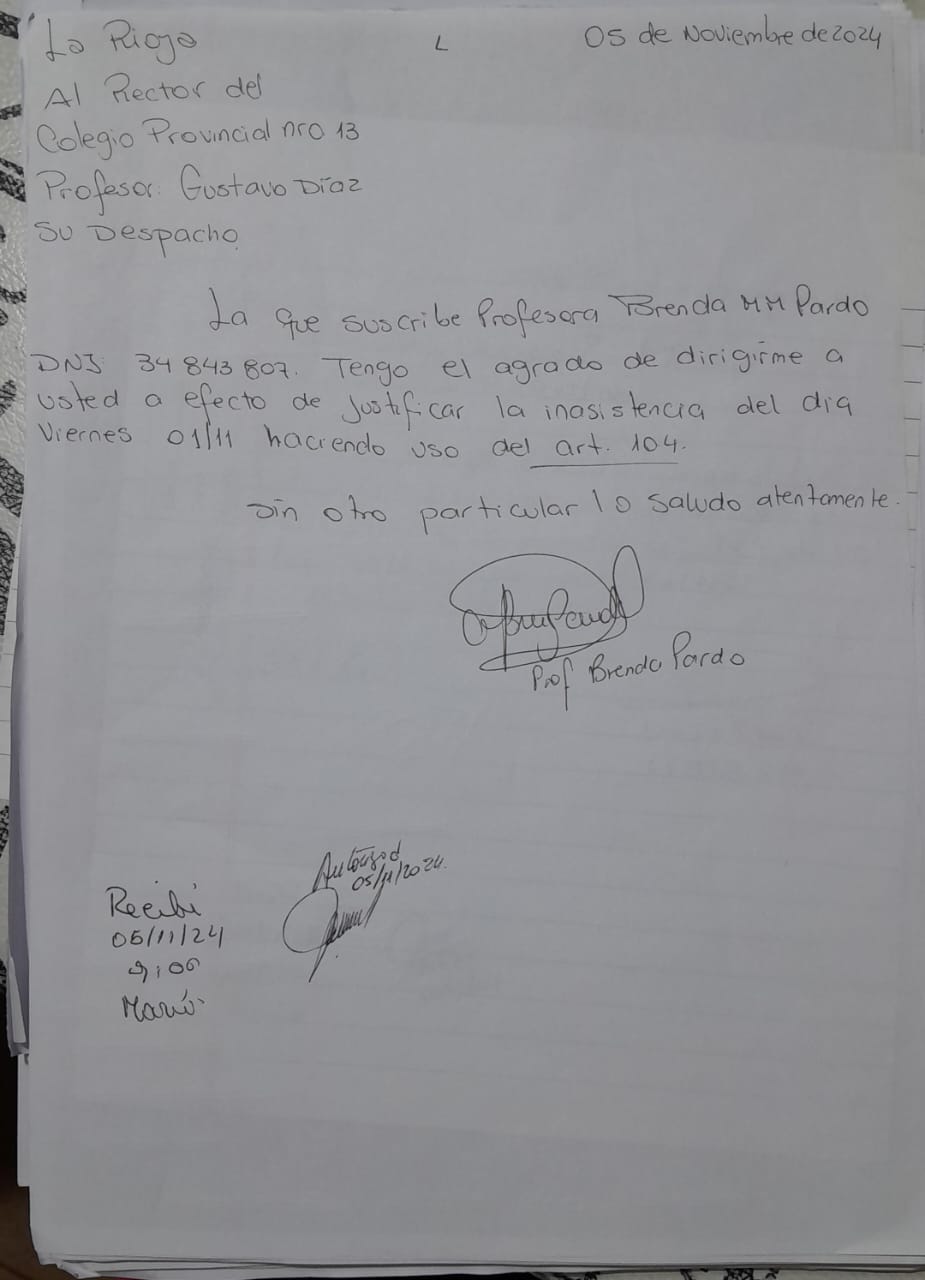 La Rioja L 05 de Noviembre de 2024
Al Rector del
Colegio Provincial nro 13
Profesor: Gustavo Díaz
Su Despacho
La que suscribe Profesora Brenda MM Pardo
DNI 34 843 807. Tengo el agrado de dirigirme a
usted a efecto de Justificar la inasistencia del dia
Viernes 01/11 haciendo uso del art. 104.
Sin otro particular lo saludo atentamente.
Prof Brenda Pardo
Autorizad
05/11/2024.
Recibi
05/11/24
9:00